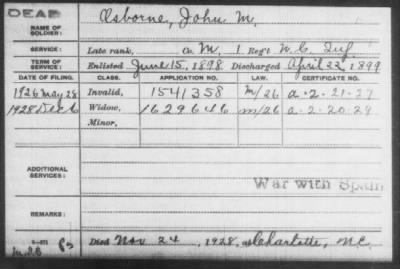 DEAD
NAME OF SOLDIER: Osborne, John M.
SERVICE: Late rank, Co. M, 1 Reg't N.C. Inf.
TERM OF SERVICE: Enlisted June 15, 1898 Discharged April 22, 1899
DATE OF FILING. CLASS. APPLICATION NO. LAW. CERTIFICATE NO.
1926 May 28 Invalid, 1541358 M/26 a-2-21-27
1928 Dec 6 Widow, 1629646 m/26 a-2-20-29
Minor,
ADDITIONAL SERVICES:
War with Spain
REMARKS:
Died Nov 24, 1928, at Charlotte, N.C.